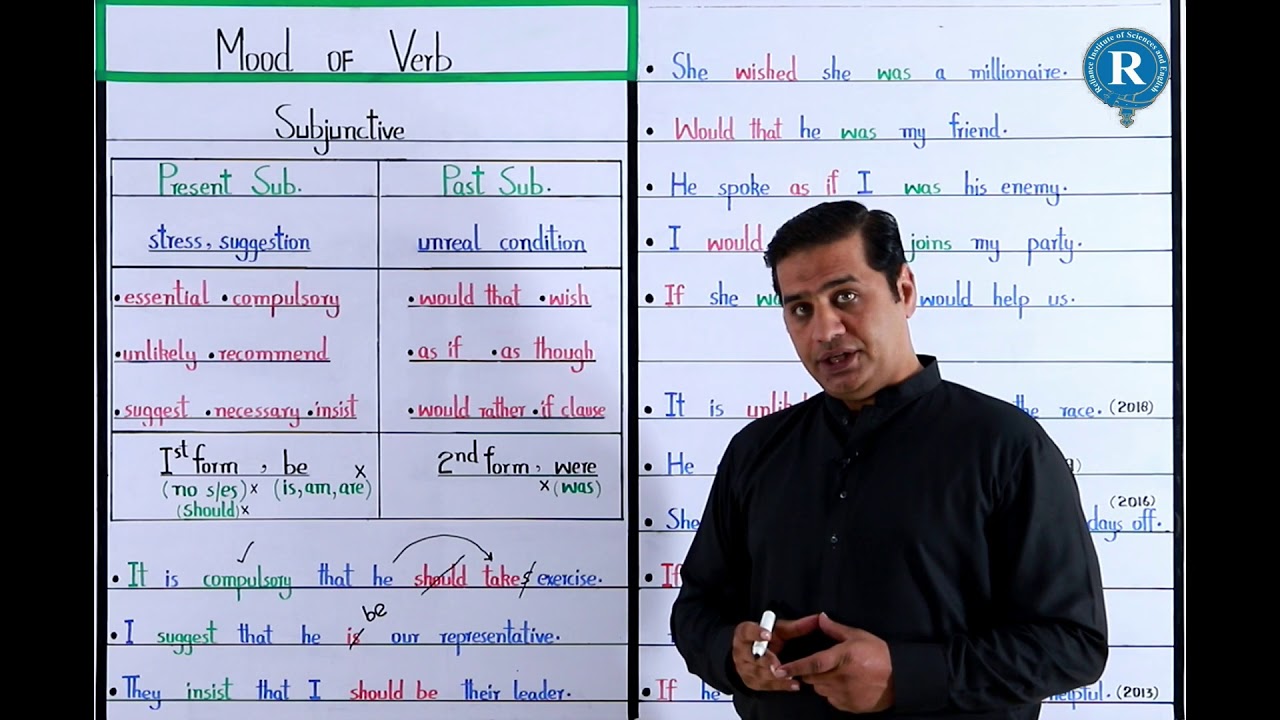 Mood OF Verb
Subjunctive
Present Sub. Past Sub.
stress, suggestion unreal condition
• essential • compulsory • would that • wish
• unlikely • recommend • as if • as though
• suggest • necessary • insist • would rather • if clause
Ist form, be x 2nd form, were
(no s/es) x (is, am, are) x (was)
(should) x
✓
• It is compulsory that he should takes exercise.
be
• I suggest that he is our representative.
• They insist that I should be their leader.
• She wished she was a millionaire.
• Would that he was my friend.
• He spoke as if I was his enemy.
• I would joins my party.
• If she would help us.
• It is the race. (2018)
• He
(2016)
• She days off.
• If
• If he (2013)
Reliance Institute of Sciences and English
R